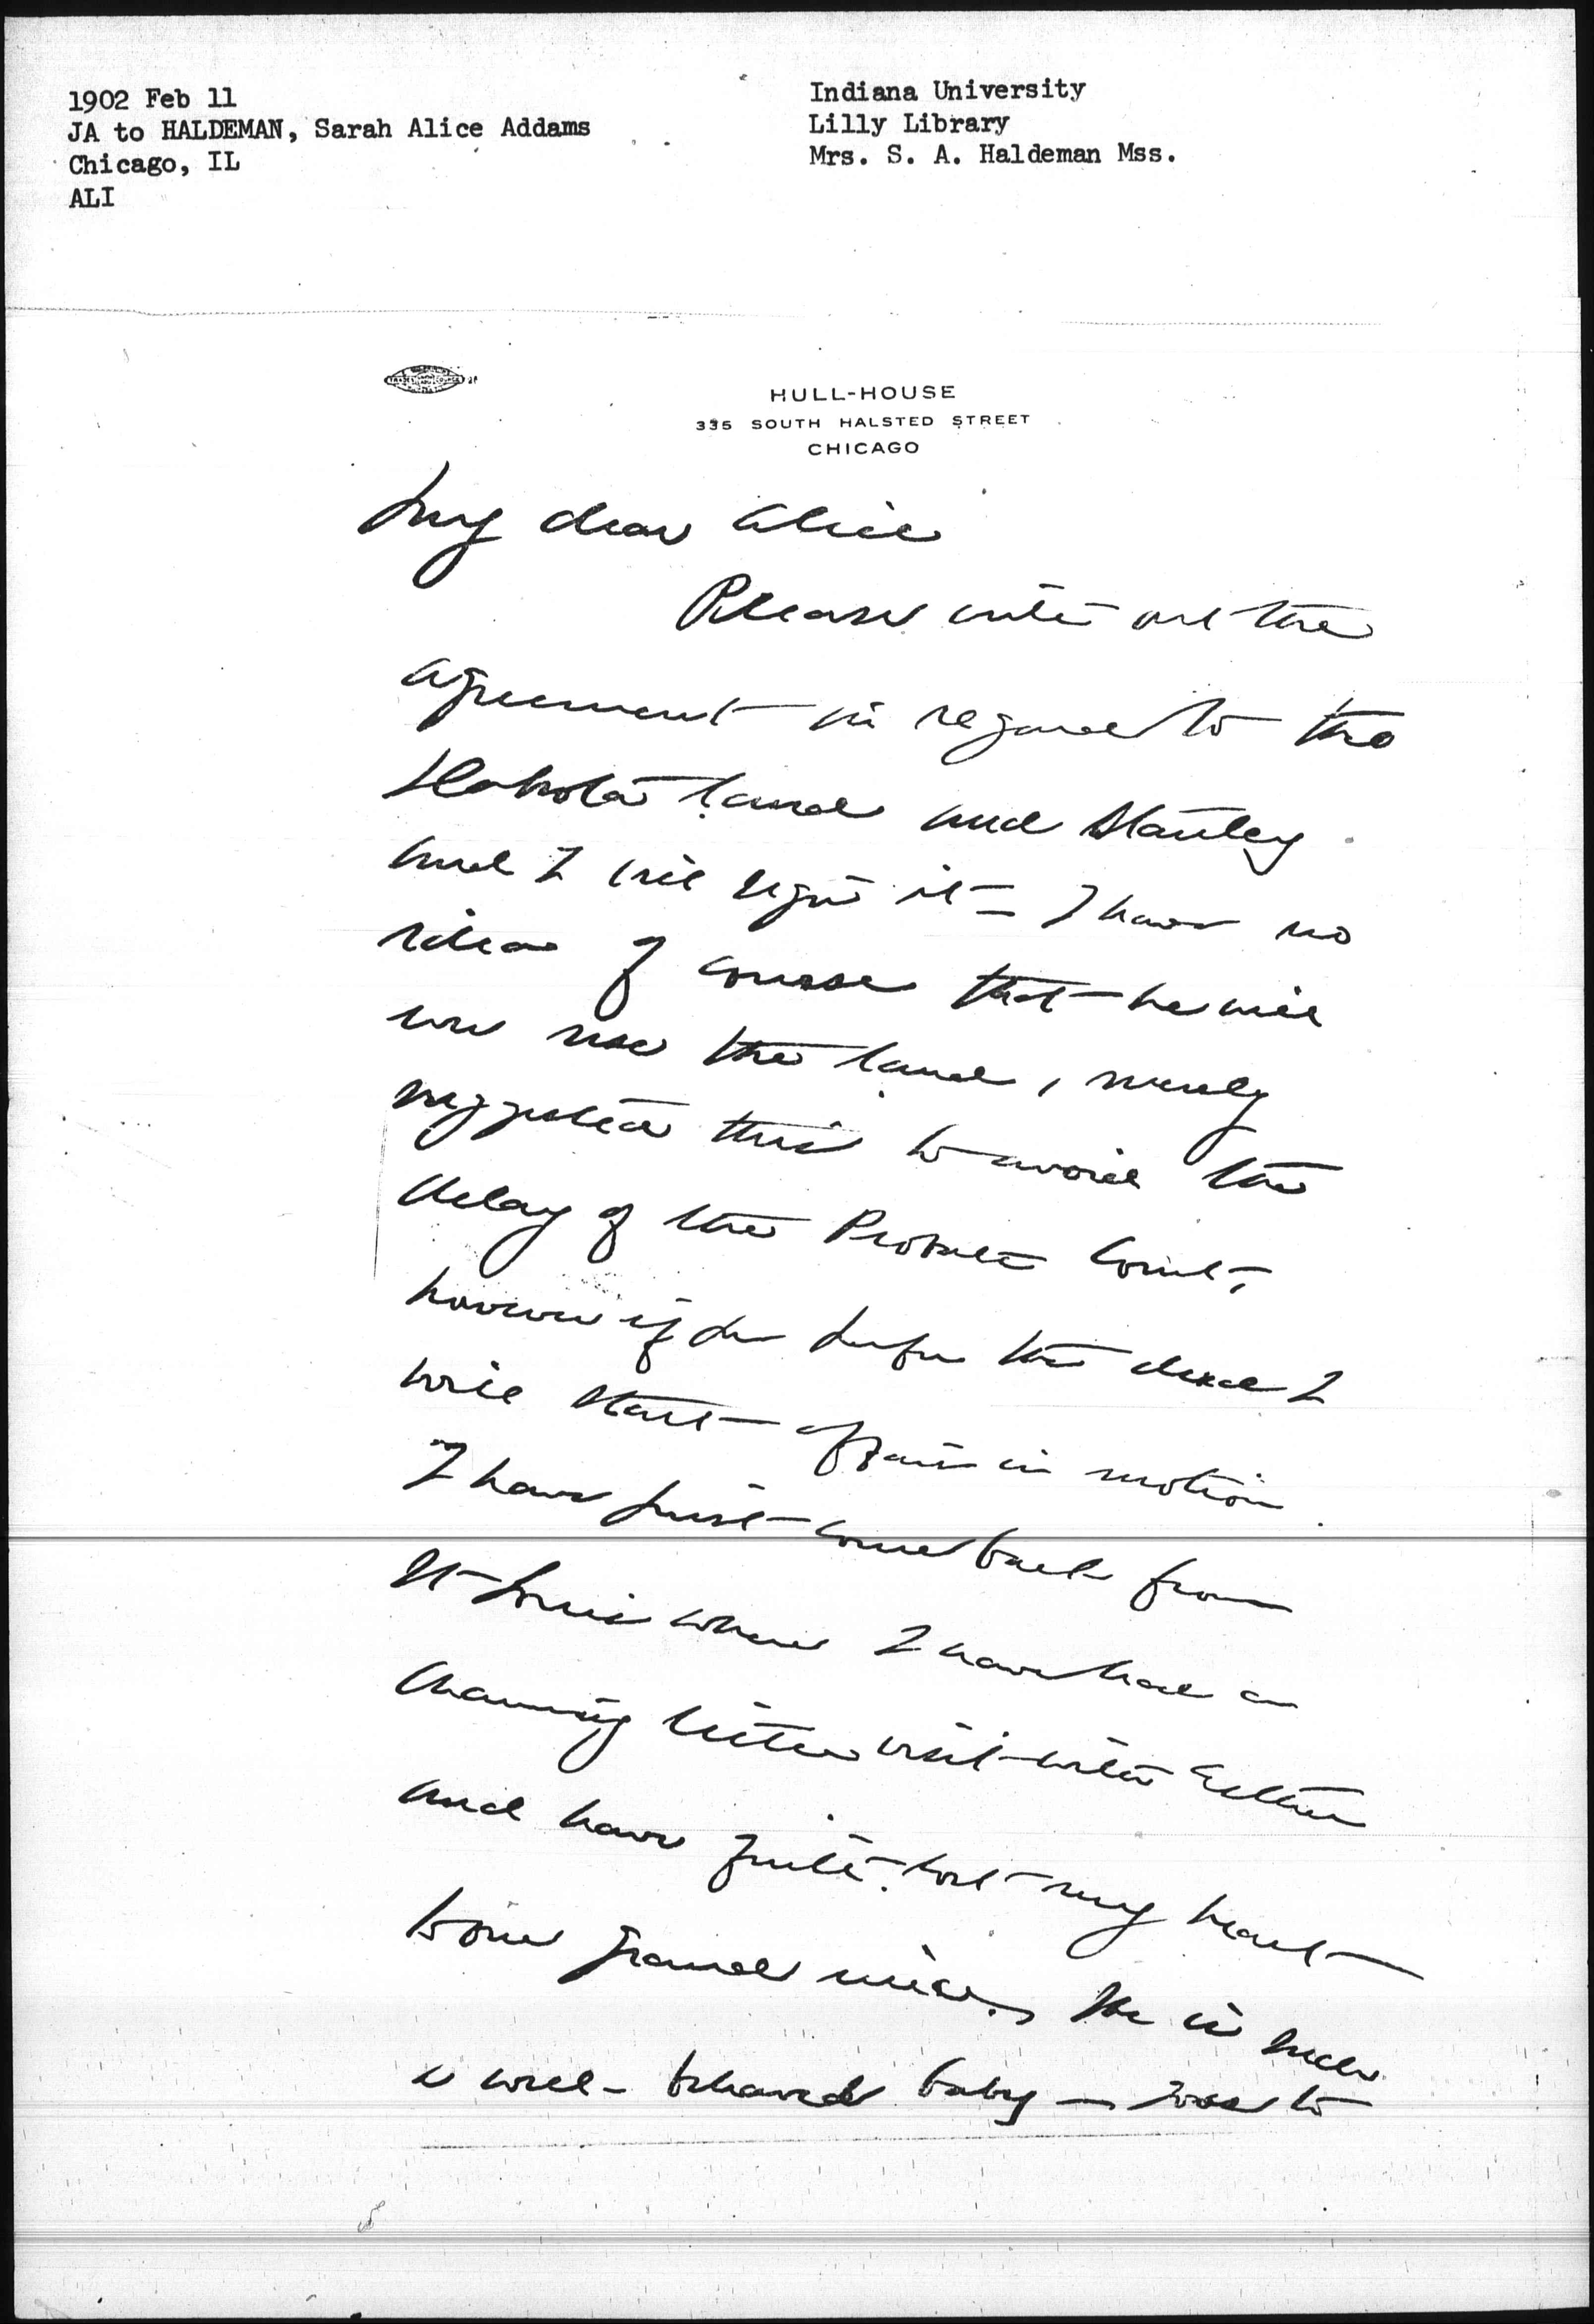 1902 Feb 11
JA to HALDEMAN, Sarah Alice Addams
Chicago, IL
ALI
Indiana University
Lilly Library
Mrs. S. A. Haldeman Mss.
HULL-HOUSE
335 SOUTH HALSTED STREET
CHICAGO
My dear Alice
Please write out the
agreement in regard to the
Dakota land and Stanley
and I will sign it – I have no
idea of course that he will
ever use the land, merely
suggested this to avoid the
delay of the Probate Court,
however if you prefer the deed I
will start affairs in motion.
I have just come back from
St Louis where I have had a
charming little visit with Esther
and have quite lost my heart
to our grand niece, she is such
a well-behaved baby – was to